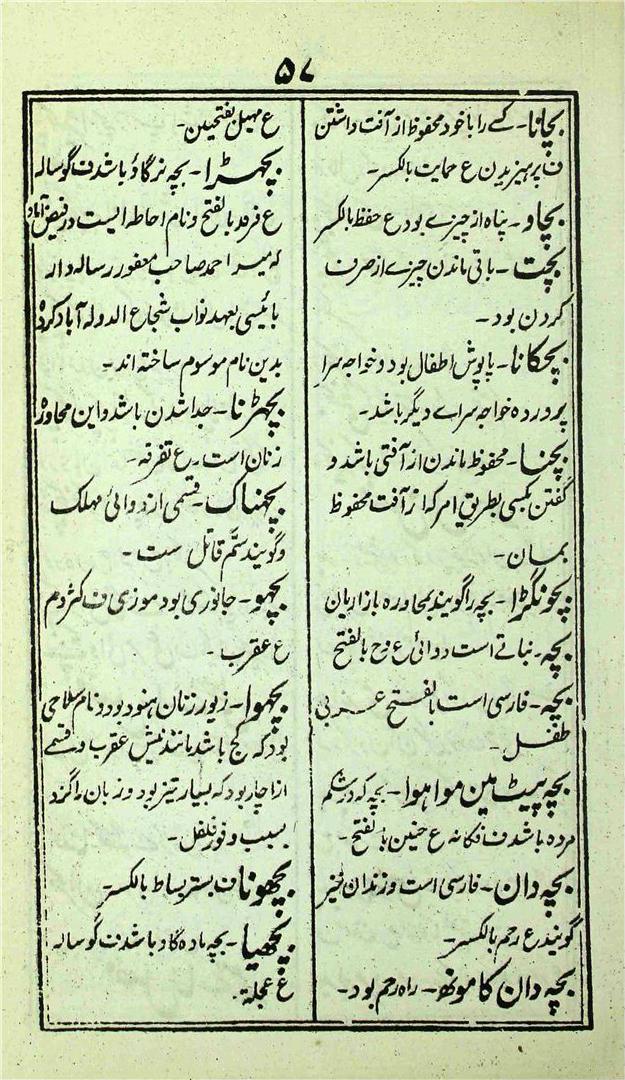 ۵۷
بچانا۔ کسے را با خود محفوظ از آفت داشتن
ف پرہیزیدن ع حمایت بالکسر۔
بچاو۔ پناہ از چیزے بود ع حفظ بالکسر
بچت۔ باقی ماندن چیزے از صرف
کردن بود۔
بچکانا۔ پاپوش اطفال بود و خواجہ سرا
پروردہ خواجہ سراے دیگر باشد۔
بچنا۔ محفوظ ماندن از آفتی باشد و
گفتن بکسی بطریق امر کہ از آفت محفوظ
بمان۔
بچونگڑا۔ بچہ را گویند بمحاورہ بازاریان
بچہ۔ نباتے است دوائی ع وج بالفتح
بچہ۔ فارسی است بالفتح عربی
طفل۔
بچہ پیٹ مین موا ہوا۔ بچہ کہ در شکم
مردہ باشد ف فکانہ ع حنین بالفتح۔
بچہ دان۔ فارسی است وزندان نیز
گویند ع رحم بالکسر۔
بچہ دان کا مونھ۔ راہ رحم بود۔
ع مہیل بفتحیین۔
بچھڑا۔ بچہ نر گاؤ باشد ف گوسالہ
ع فرقد بالفتح و نام احاطہ ایست در فیض آباد
کہ میر احمد صاحب مغفور رسالہ دار
بائیسی بعہد نواب شجاع الدولہ آباد کردہ
بدین نام موسوم ساختہ اند۔
بچھڑنا۔ جدا شدن باشد و این محاورہ
زنان است۔ ع تفرقہ۔
بچھناک۔ قسمی از دوائی مہلک
و گویند سم قاتل ست۔
بچھو۔ جانوری بود موزی ف کژدم
ع عقرب۔
بچھوا۔ زیور زنان ہنود بود و نام سلاحی
بود کہ کج باشد مانند نیش عقرب و قسمے
از اچار بود کہ بسیار تیز بود و زبان را گزد
بسبب وفور فلفل۔
بچھونا ف بستر بساط بالکسر۔
بچھیا۔ بچہ مادہ گاو باشد ف گوسالہ
ع عجلۃ۔